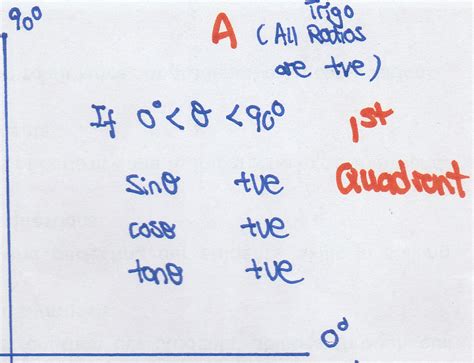 90°
A (All Trigo Ratios
are +ve)
If 0° < θ < 90°
1st
Quadrant
sinθ +ve
cosθ +ve
tanθ +ve
0°